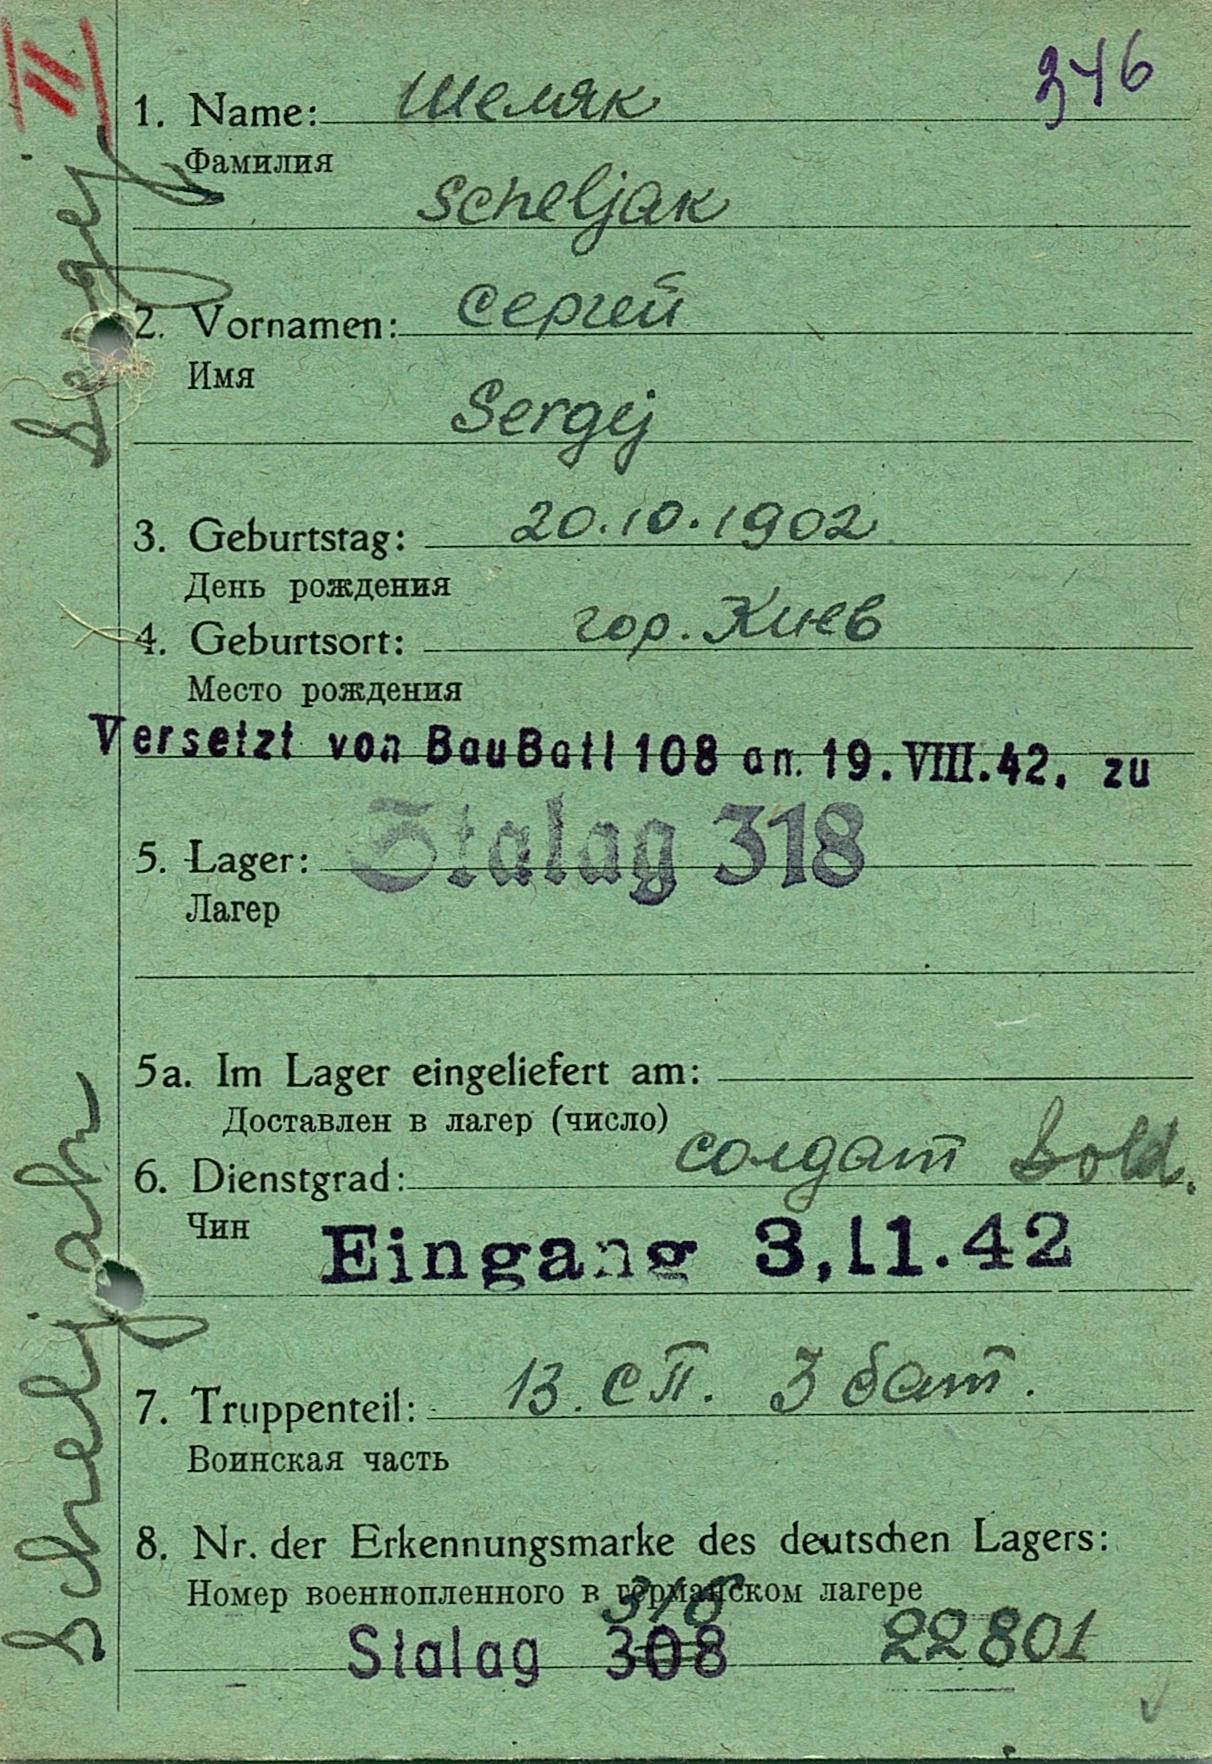 II
346
1. Name: Шемяк
Фамилия
Scheljak
2. Vornamen: Сергей
Имя
Sergej
3. Geburtstag: 20.10.1902
День рождения
4. Geburtsort: гор. Киев
Место рождения
Versetzt von BauBatl 108 an. 19. VIII. 42. zu
5. Lager: Stalag 318
Лагер
5a. Im Lager eingeliefert am:
Доставлен в лагер (число)
6. Dienstgrad: солдат Sold.
Чин
Eingang 3.11.42
7. Truppenteil: 13. сп. 3 бат.
Воинская часть
8. Nr. der Erkennungsmarke des deutschen Lagers:
Номер военнопленного в германском лагере
318
Stalag 308 22801
Scheljak Sergej